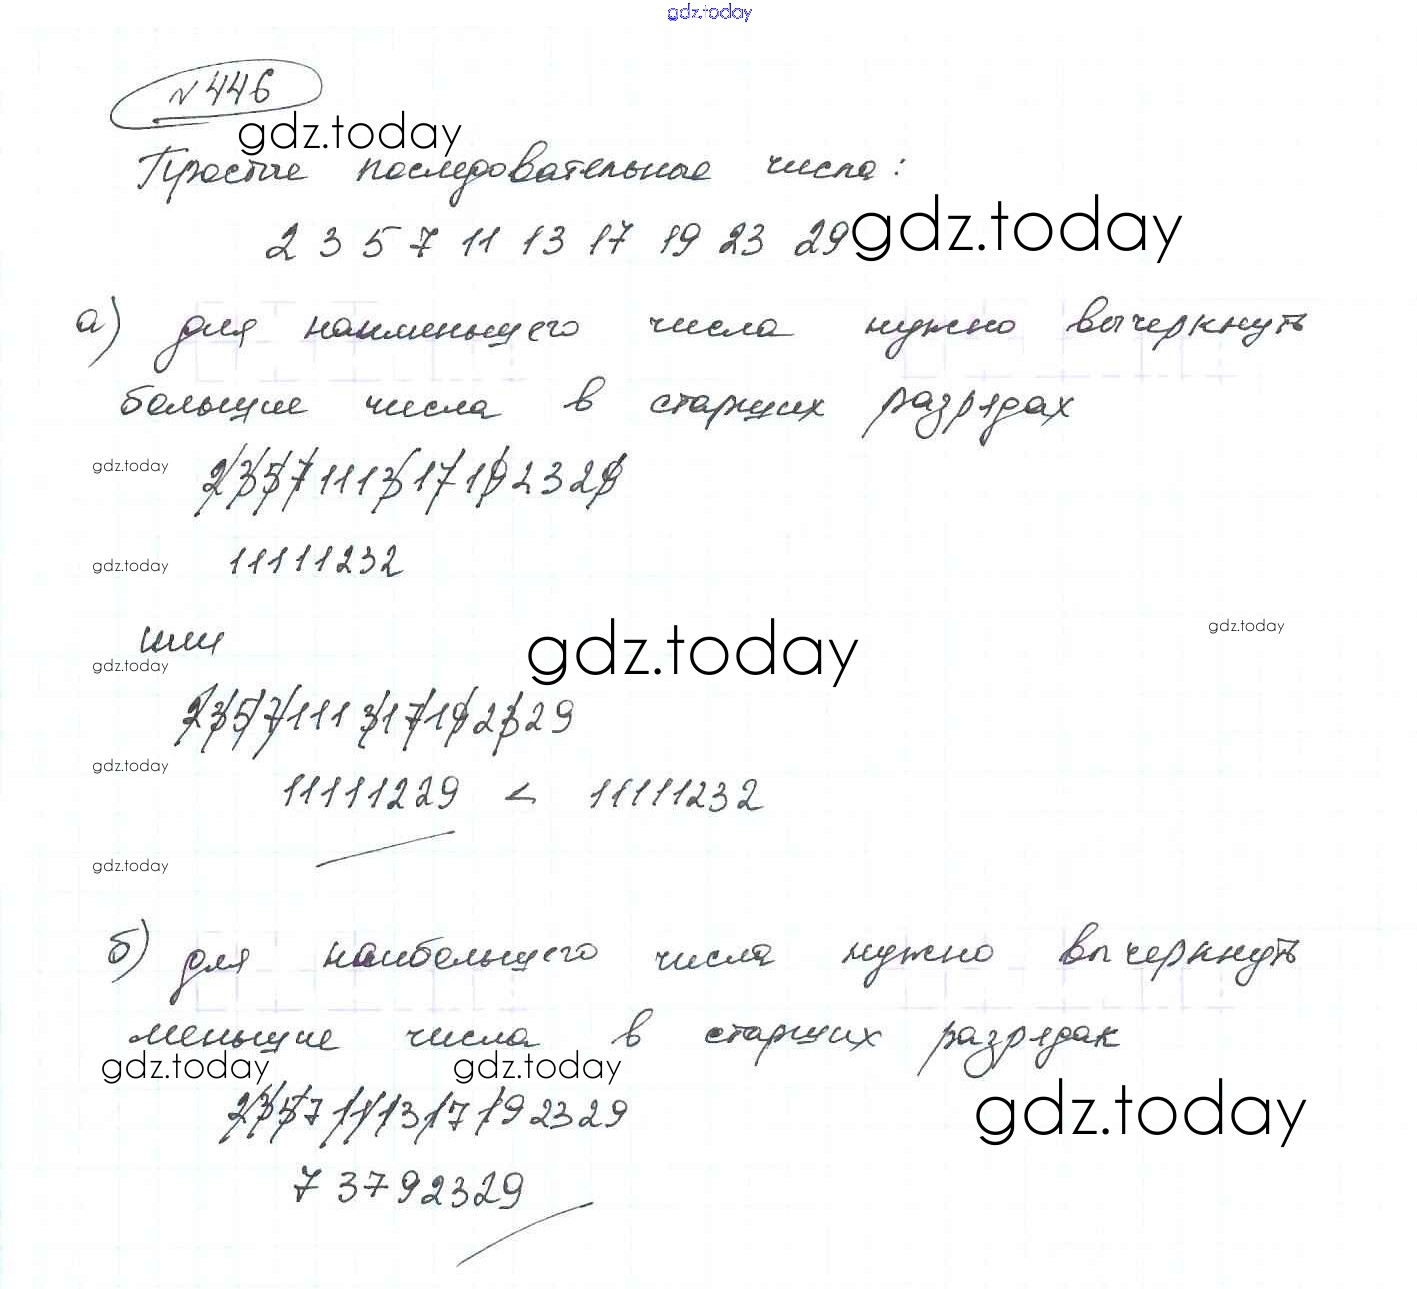 gdz.today
№446
gdz.today
Простые последовательные числа:
2 3 5 7 11 13 17 19 23 29
gdz.today
а) для наименьшего числа нужно вычеркнуть
большие числа в старших разрядах
gdz.today
2357111317192329
gdz.today
11111232
или
gdz.today
gdz.today
gdz.today
2357111317192329
gdz.today
11111229 < 11111232
gdz.today
б) для наибольшего числа нужно вычеркнуть
меньшие числа в старших разрядак
gdz.today
gdz.today
gdz.today
2357111317192329
73792329